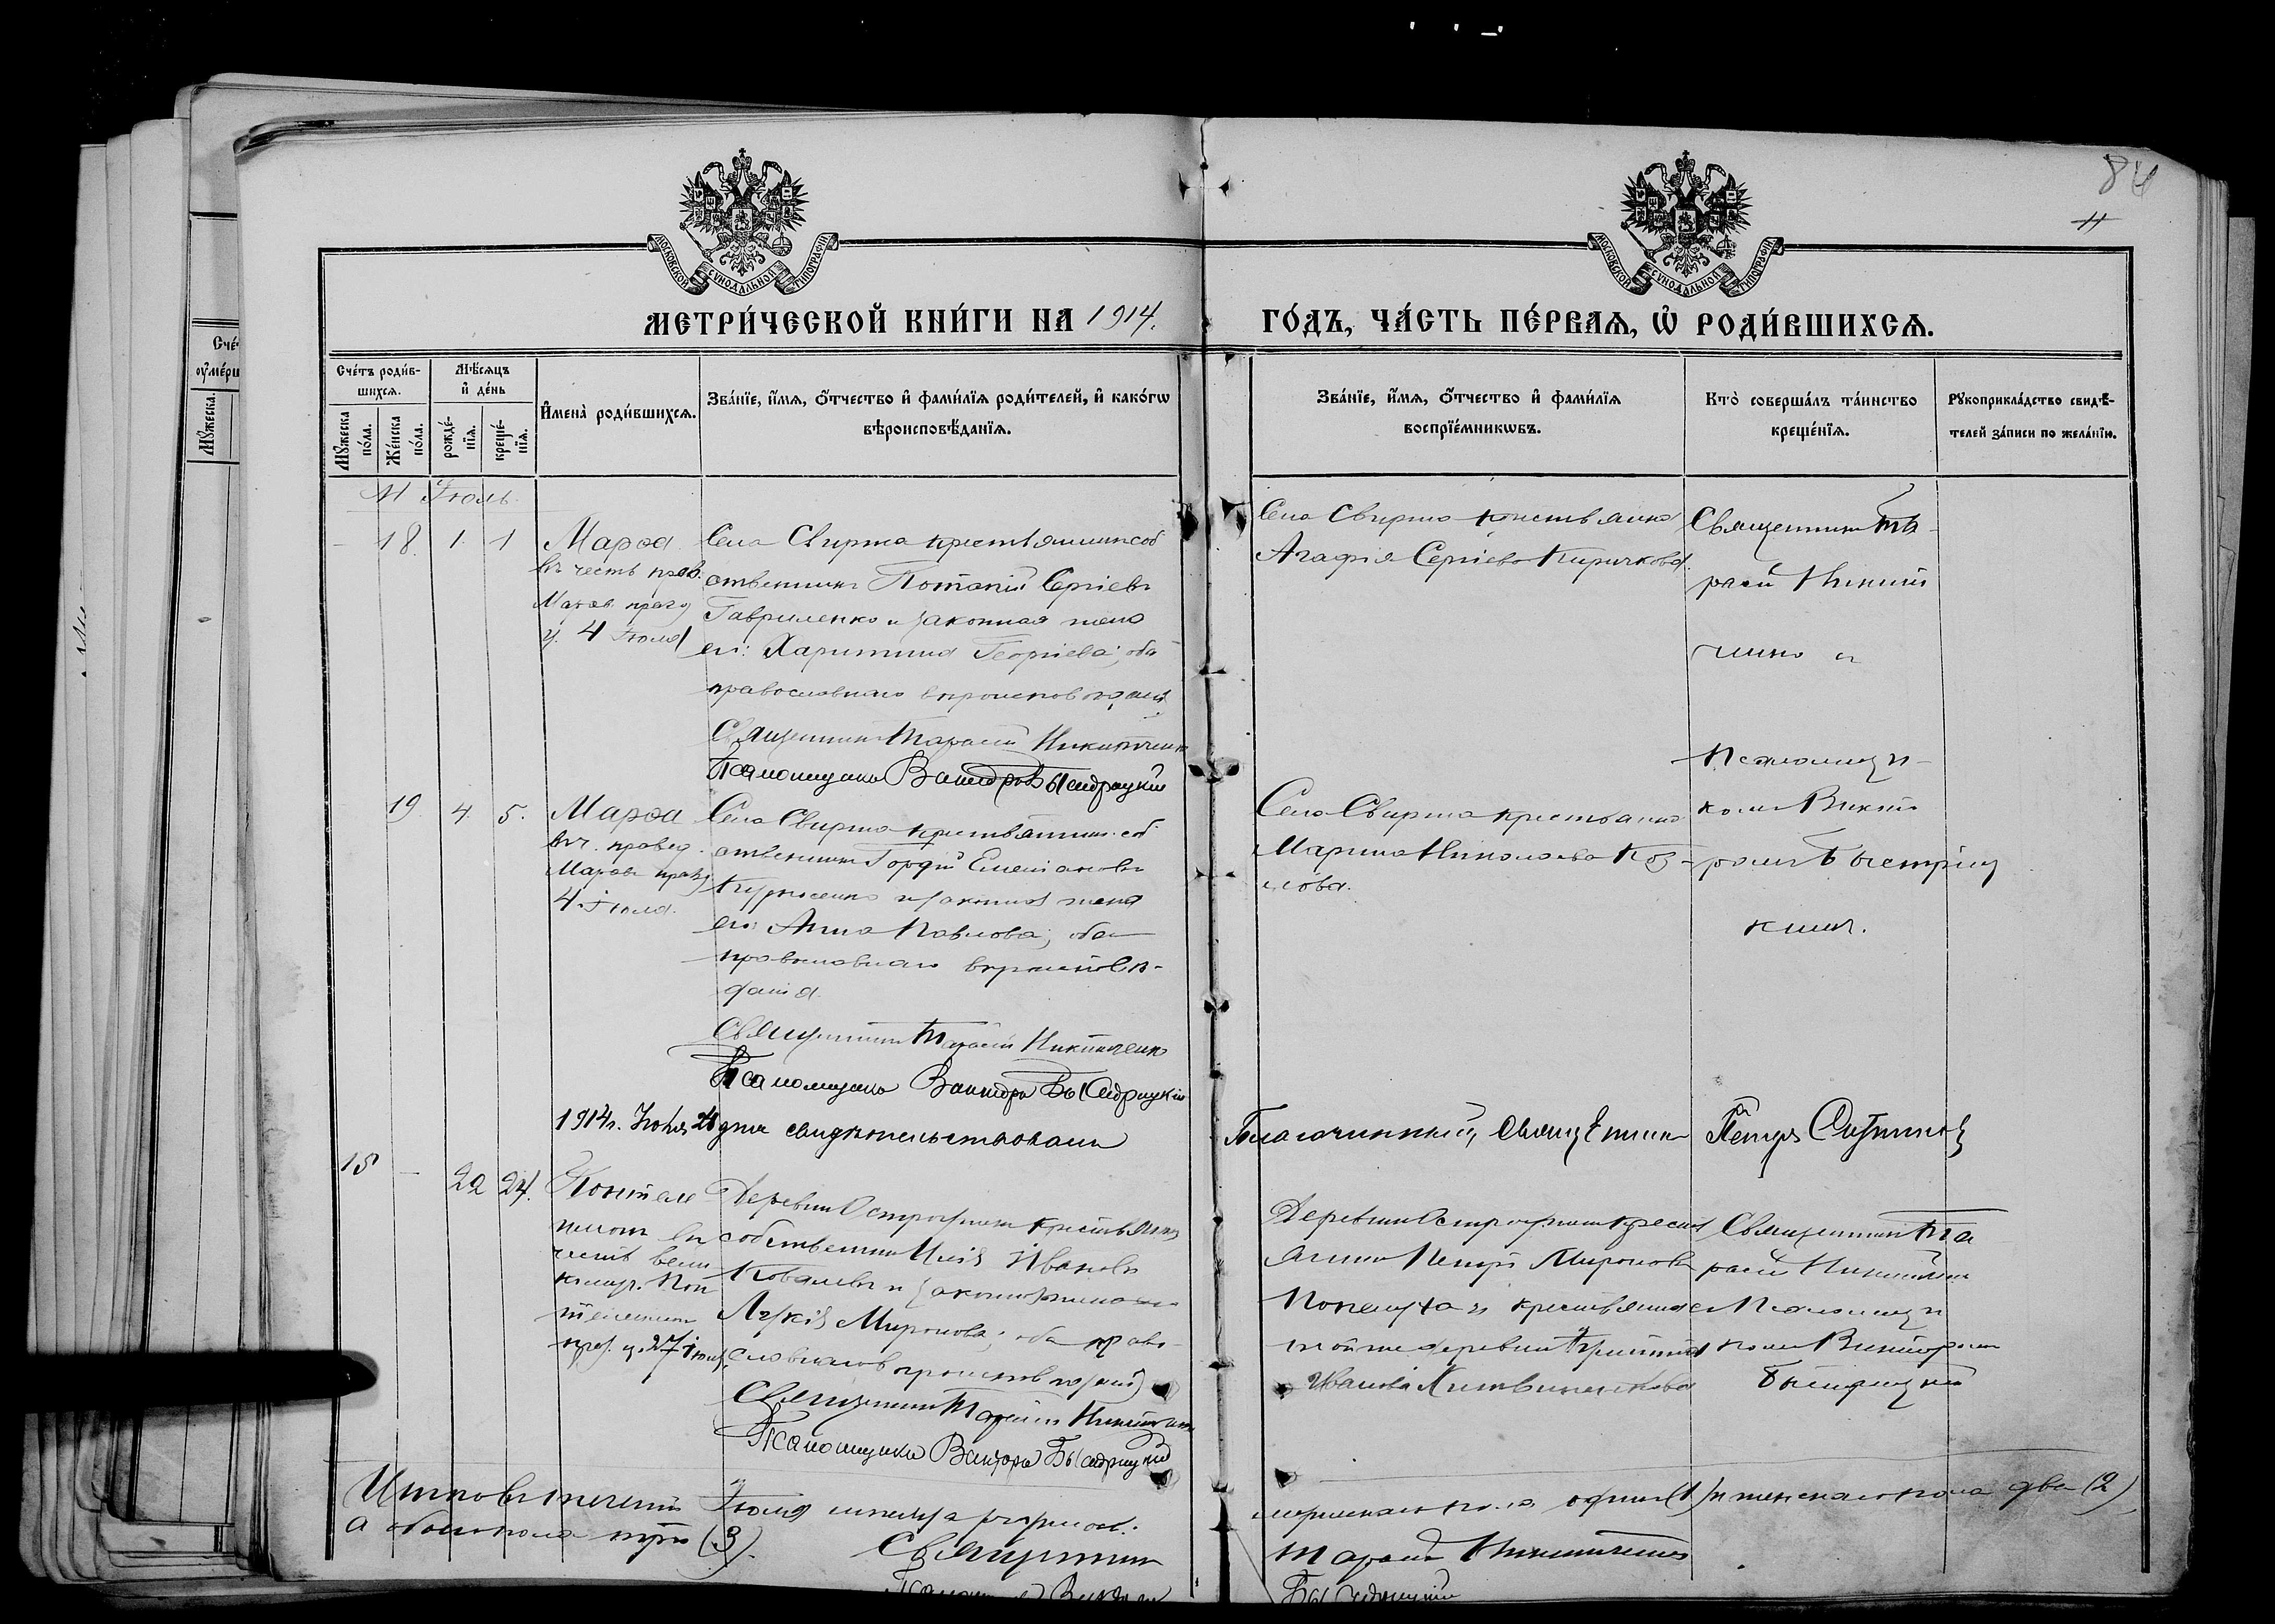 84
11
МОСКОВСКОЙ СѴНОДАЛЬНОЙ ТИПОГРАФІИ.
МОСКОВСКОЙ СѴНОДАЛЬНОЙ ТИПОГРАФІИ.
МЕТРИ́ЧЕСКОЙ КНИ́ГИ НА 1914.
ГО́ДЪ, ЧА́СТЬ ПЕ́РВАѦ, Ѡ҆ РОДИ́ВШИХСѦ.
Сче́тъ роди́в-
шихсѧ.
Мꙋ́жеска по́ла.
Же́нска по́ла.
Мѣ́сѧцъ
и҆ де́нь
рожде́-
нїѧ.
креще́-
нїѧ.
И҆мена̀ роди́вшихсѧ.
Зва́нїе, и҆́мѧ, ѻ҆́тчество и҆ фами́лїѧ роди́телей, и҆ како́гѡ
вѣроисповѣ́данїѧ.
Зва́нїе, и҆́мѧ, ѻ҆́тчество и҆ фами́лїѧ
воспрїе́мникѡвъ.
Кто̀ соверша́лъ та́инство
креще́нїѧ.
Рꙋкоприкла́дство свидѣ́-
телей за́писи по жела́нїю.
Сче́
оумерш
Мꙋ́жеска.
Іюль
- 18. 1. 1
Марѳа
въ честь прав.
Марѳы празд
4 Іюля
Села Свирта крестьянинъ соб
ственникъ Потапій Сергіевъ
Гавриленко и законная жена
его: Харитина Георгіева; оба
православнаго вѣроисповѣданія
Священникъ Тарасій Никитченко
Псаломщикъ Викторъ Быстрицкій
Села Свирта крестьянка
Агафія Сергіева Киричкова.
Священникъ Та-
расій Никит
ченко и
Псаломщи-
комъ Викто
ромъ Быстриц
кимъ.
19 4. 5.
Марѳа
въ ч. правед.
Марѳы празд
4 Іюля.
Села Свирта крестьянинъ соб
ственникъ Гордій Емеліановъ
и законная жена
его: Анна Павлова; оба
православнаго вѣроисповѣ-
данія.
Священникъ Тарасій Никитченко
Псаломщикъ Викторъ Быстрицкій
Села Свирта крестьянка
Марина Николаева Коз-
лова.
1914 г. дня свидѣтельствовалъ
Благочинный, Священникъ Петръ
15 - 22 24.
Пантеле
имонъ въ
честь вели
комуч. Пан
телеимона
праз. ч. 27 іюля.
Деревни крестьянинъ
собственникъ Илія Ивановъ
Ковалевъ и законная жена его
Миронова; оба право-
славнаго вѣроисповѣданія
Священникъ Тарасій Никитченко
Псаломщикъ Викторъ Быстрицкій
Деревни крест
янинъ Петръ Мироновъ
и крестьянка
той же деревни
Иванова
Священникъ Та
расій Никитченко
съ Псаломщи
комъ Викторомъ
Быстрицкимъ
Итого въ теченіи Іюля мѣсяца родилось:
мужескаго пола одинъ (1) и женскаго пола два (2),
а обоего пола три (3).
Священникъ
Тарасій Никитченко
Псаломщикъ Викторъ
Быстрицкій